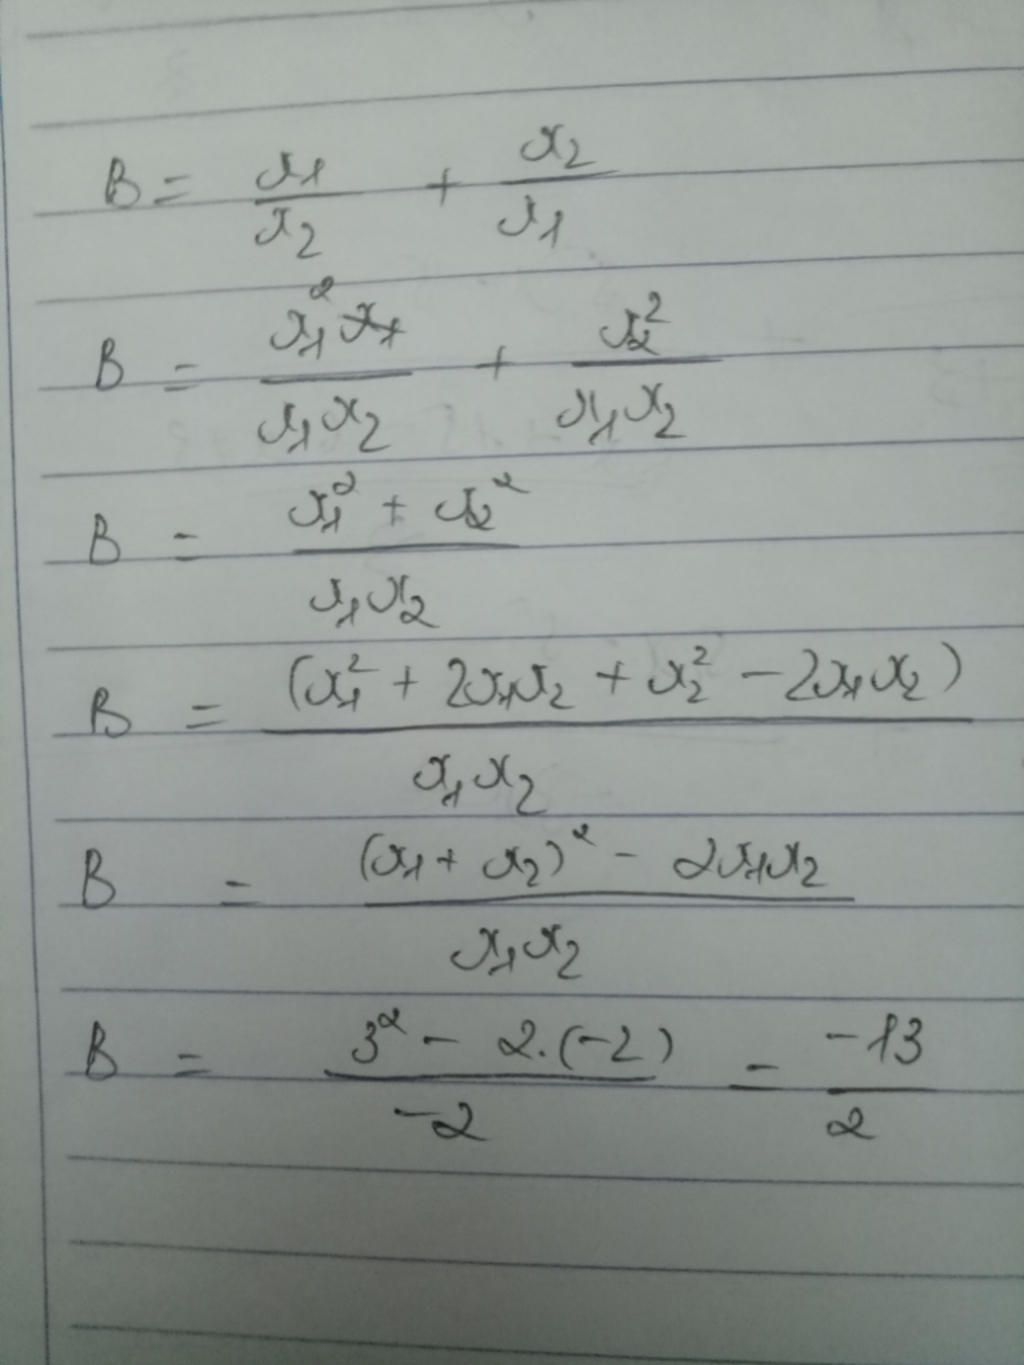 B = x₁/x₂ + x₂/x₁
B = x₁²/x₁x₂ + x₂²/x₁x₂
B = (x₁² + x₂²)/x₁x₂
B = (x₁² + 2x₁x₂ + x₂² - 2x₁x₂)/x₁x₂
B = ((x₁ + x₂)² - 2x₁x₂)/x₁x₂
B = (3² - 2.(-2))/-2 = -13/2